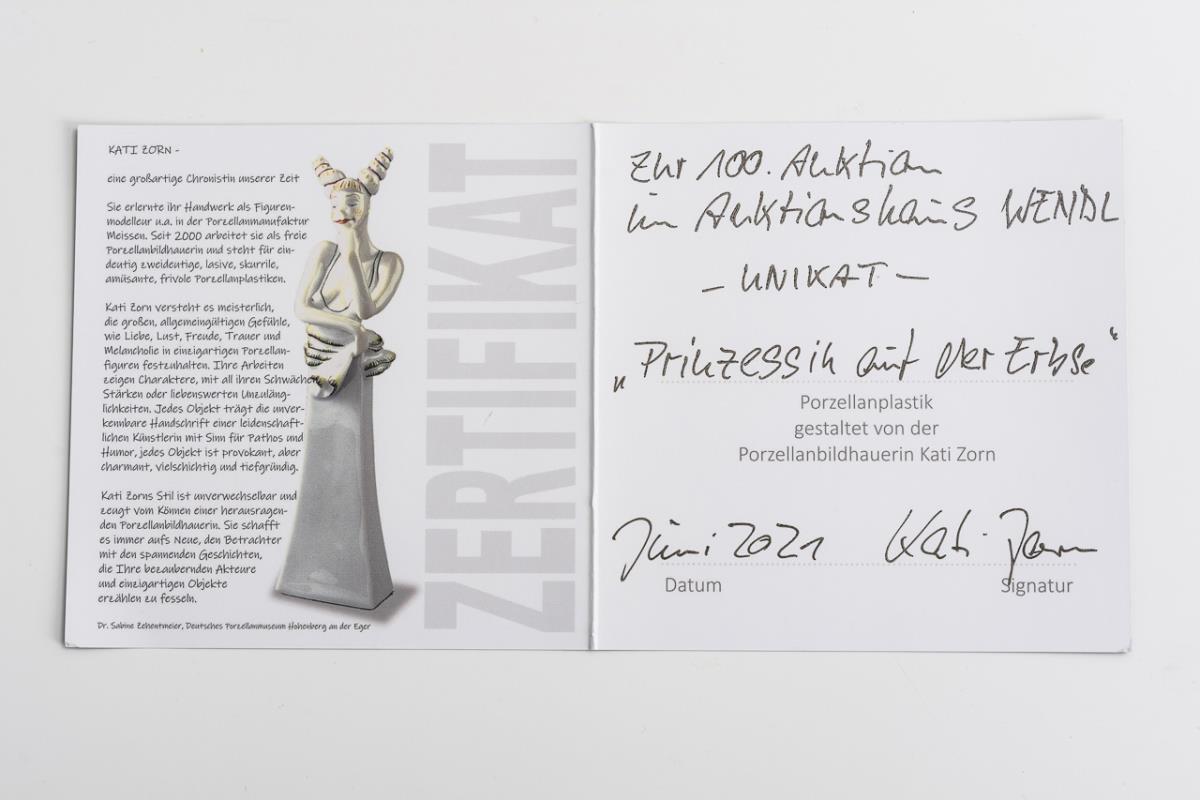 KATI ZORN -
eine großartige Chronistin unserer Zeit
Sie erlernte ihr Handwerk als Figuren-
modelleur u.a. in der Porzellanmanufaktur
Meissen. Seit 2000 arbeitet sie als freie
Porzellanbildhauerin und steht für ein-
deutig zweideutige, lasive, skurrile,
amüsante, frivole Porzellanplastiken.
Kati Zorn versteht es meisterlich,
die großen, allgemeingültigen Gefühle,
wie Liebe, Lust, Freude, Trauer und
Melancholie in einzigartigen Porzellan-
figuren festzuhalten. Ihre Arbeiten
zeigen Charaktere, mit all ihren Schwächen
Stärken oder liebenswerten Unzuläng-
lichkeiten. Jedes Objekt trägt die unver-
kennbare Handschrift einer leidenschaft-
lichen Künstlerin mit Sinn für Pathos und
Humor, jedes Objekt ist provokant, aber
charmant, vielschichtig und tiefgründig.
Kati Zorns Stil ist unverwechselbar und
zeugt vom Können einer herausragen-
den Porzellanbildhauerin. Sie schafft
es immer aufs Neue, den Betrachter
mit den spannenden Geschichten,
die Ihre bezaubernden Akteure
und einzigartigen Objekte
erzählen zu fesseln.
Dr. Sabine Zehentmeier, Deutsches Porzellanmuseum Hohenberg an der Eger
ZERTIFIKAT
Zur 100. Auktion
im Auktionshaus WENDL
- UNIKAT -
„Prinzessin auf der Erbse“
Porzellanplastik
gestaltet von der
Porzellanbildhauerin Kati Zorn
Juni 2021 Kati Zorn
Datum Signatur